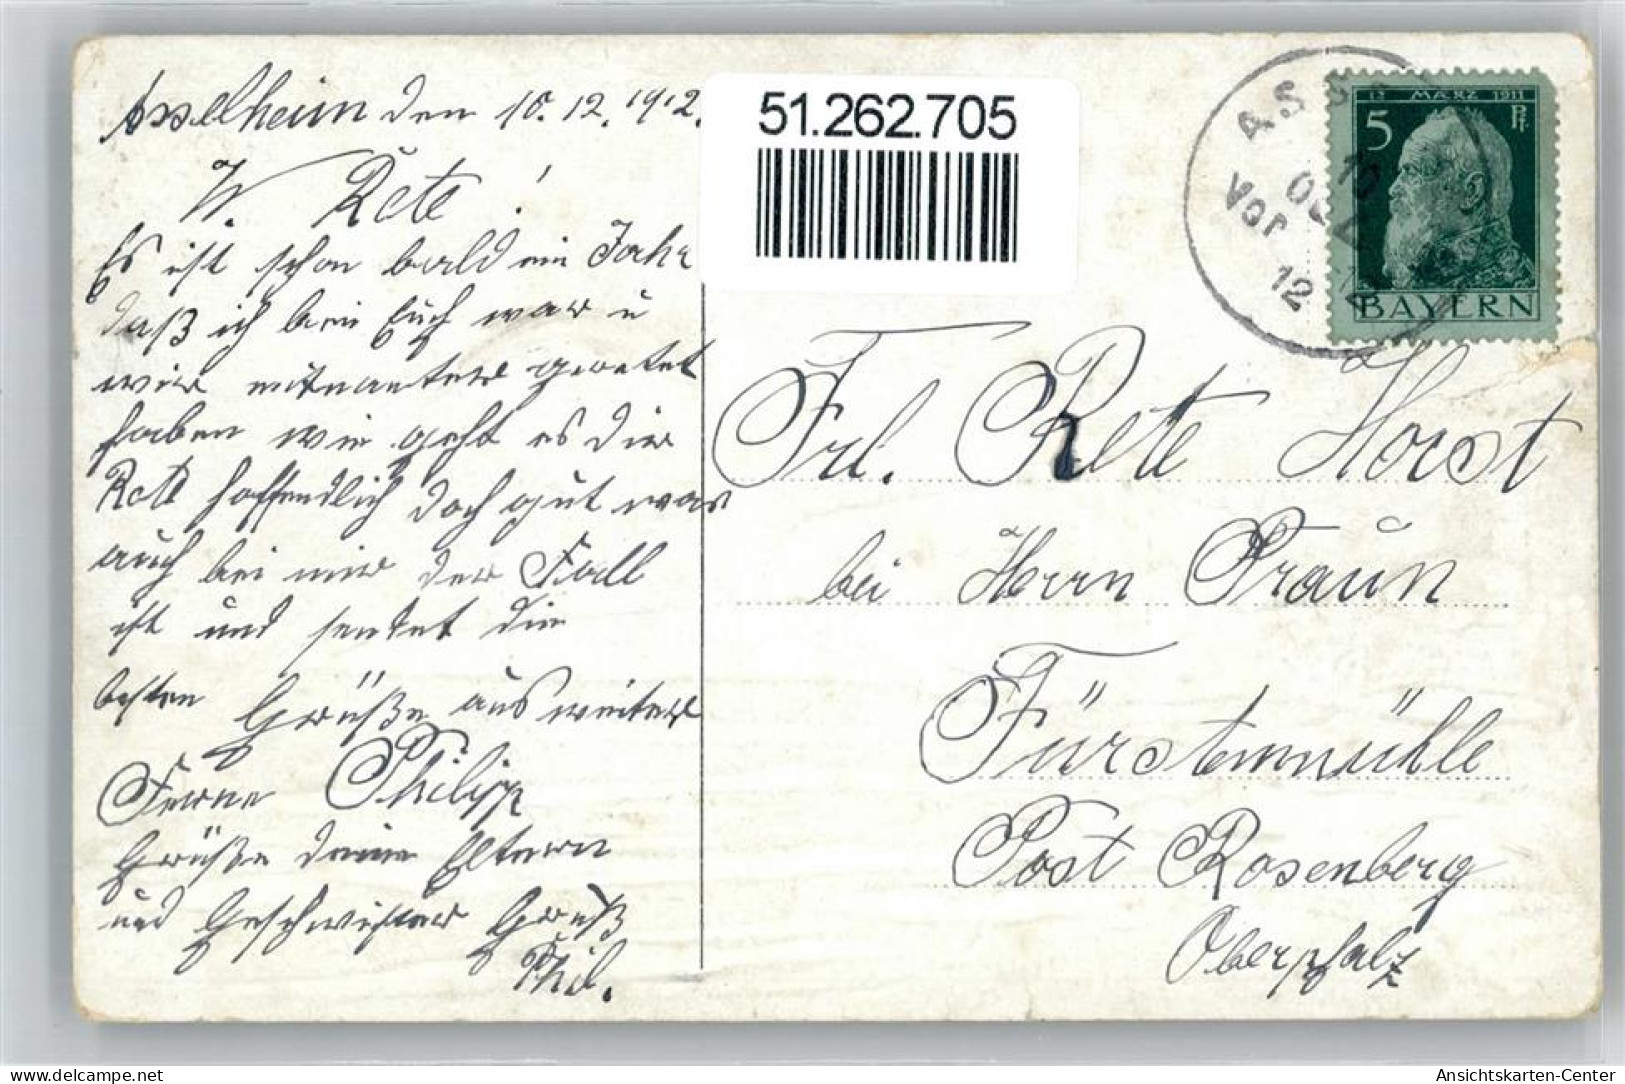 Asselheim den 10.12.1912.
W. Rete!
Es ist schon bald ein Jahr
daß ich bein Euch war u
wir mitnanter geretet
haben wie geht es dir
Rete hoffendlich doch gut was
auch bei mir der Fall
ist und sentet die
besten Grüße aus weiter
Ferne Philipp
Grüße deine Eltern
und Geschwister Gruß
Phil.
51.262.705
ASS
Vor
12
12 MÆRZ 1911
5 Pf.
BAYERN
Frl. Rete Horst
bei Herrn Praun
Fürstenmühle
Post Rosenberg
Oberpfalz
delcampe.net
Ansichtskarten-Center